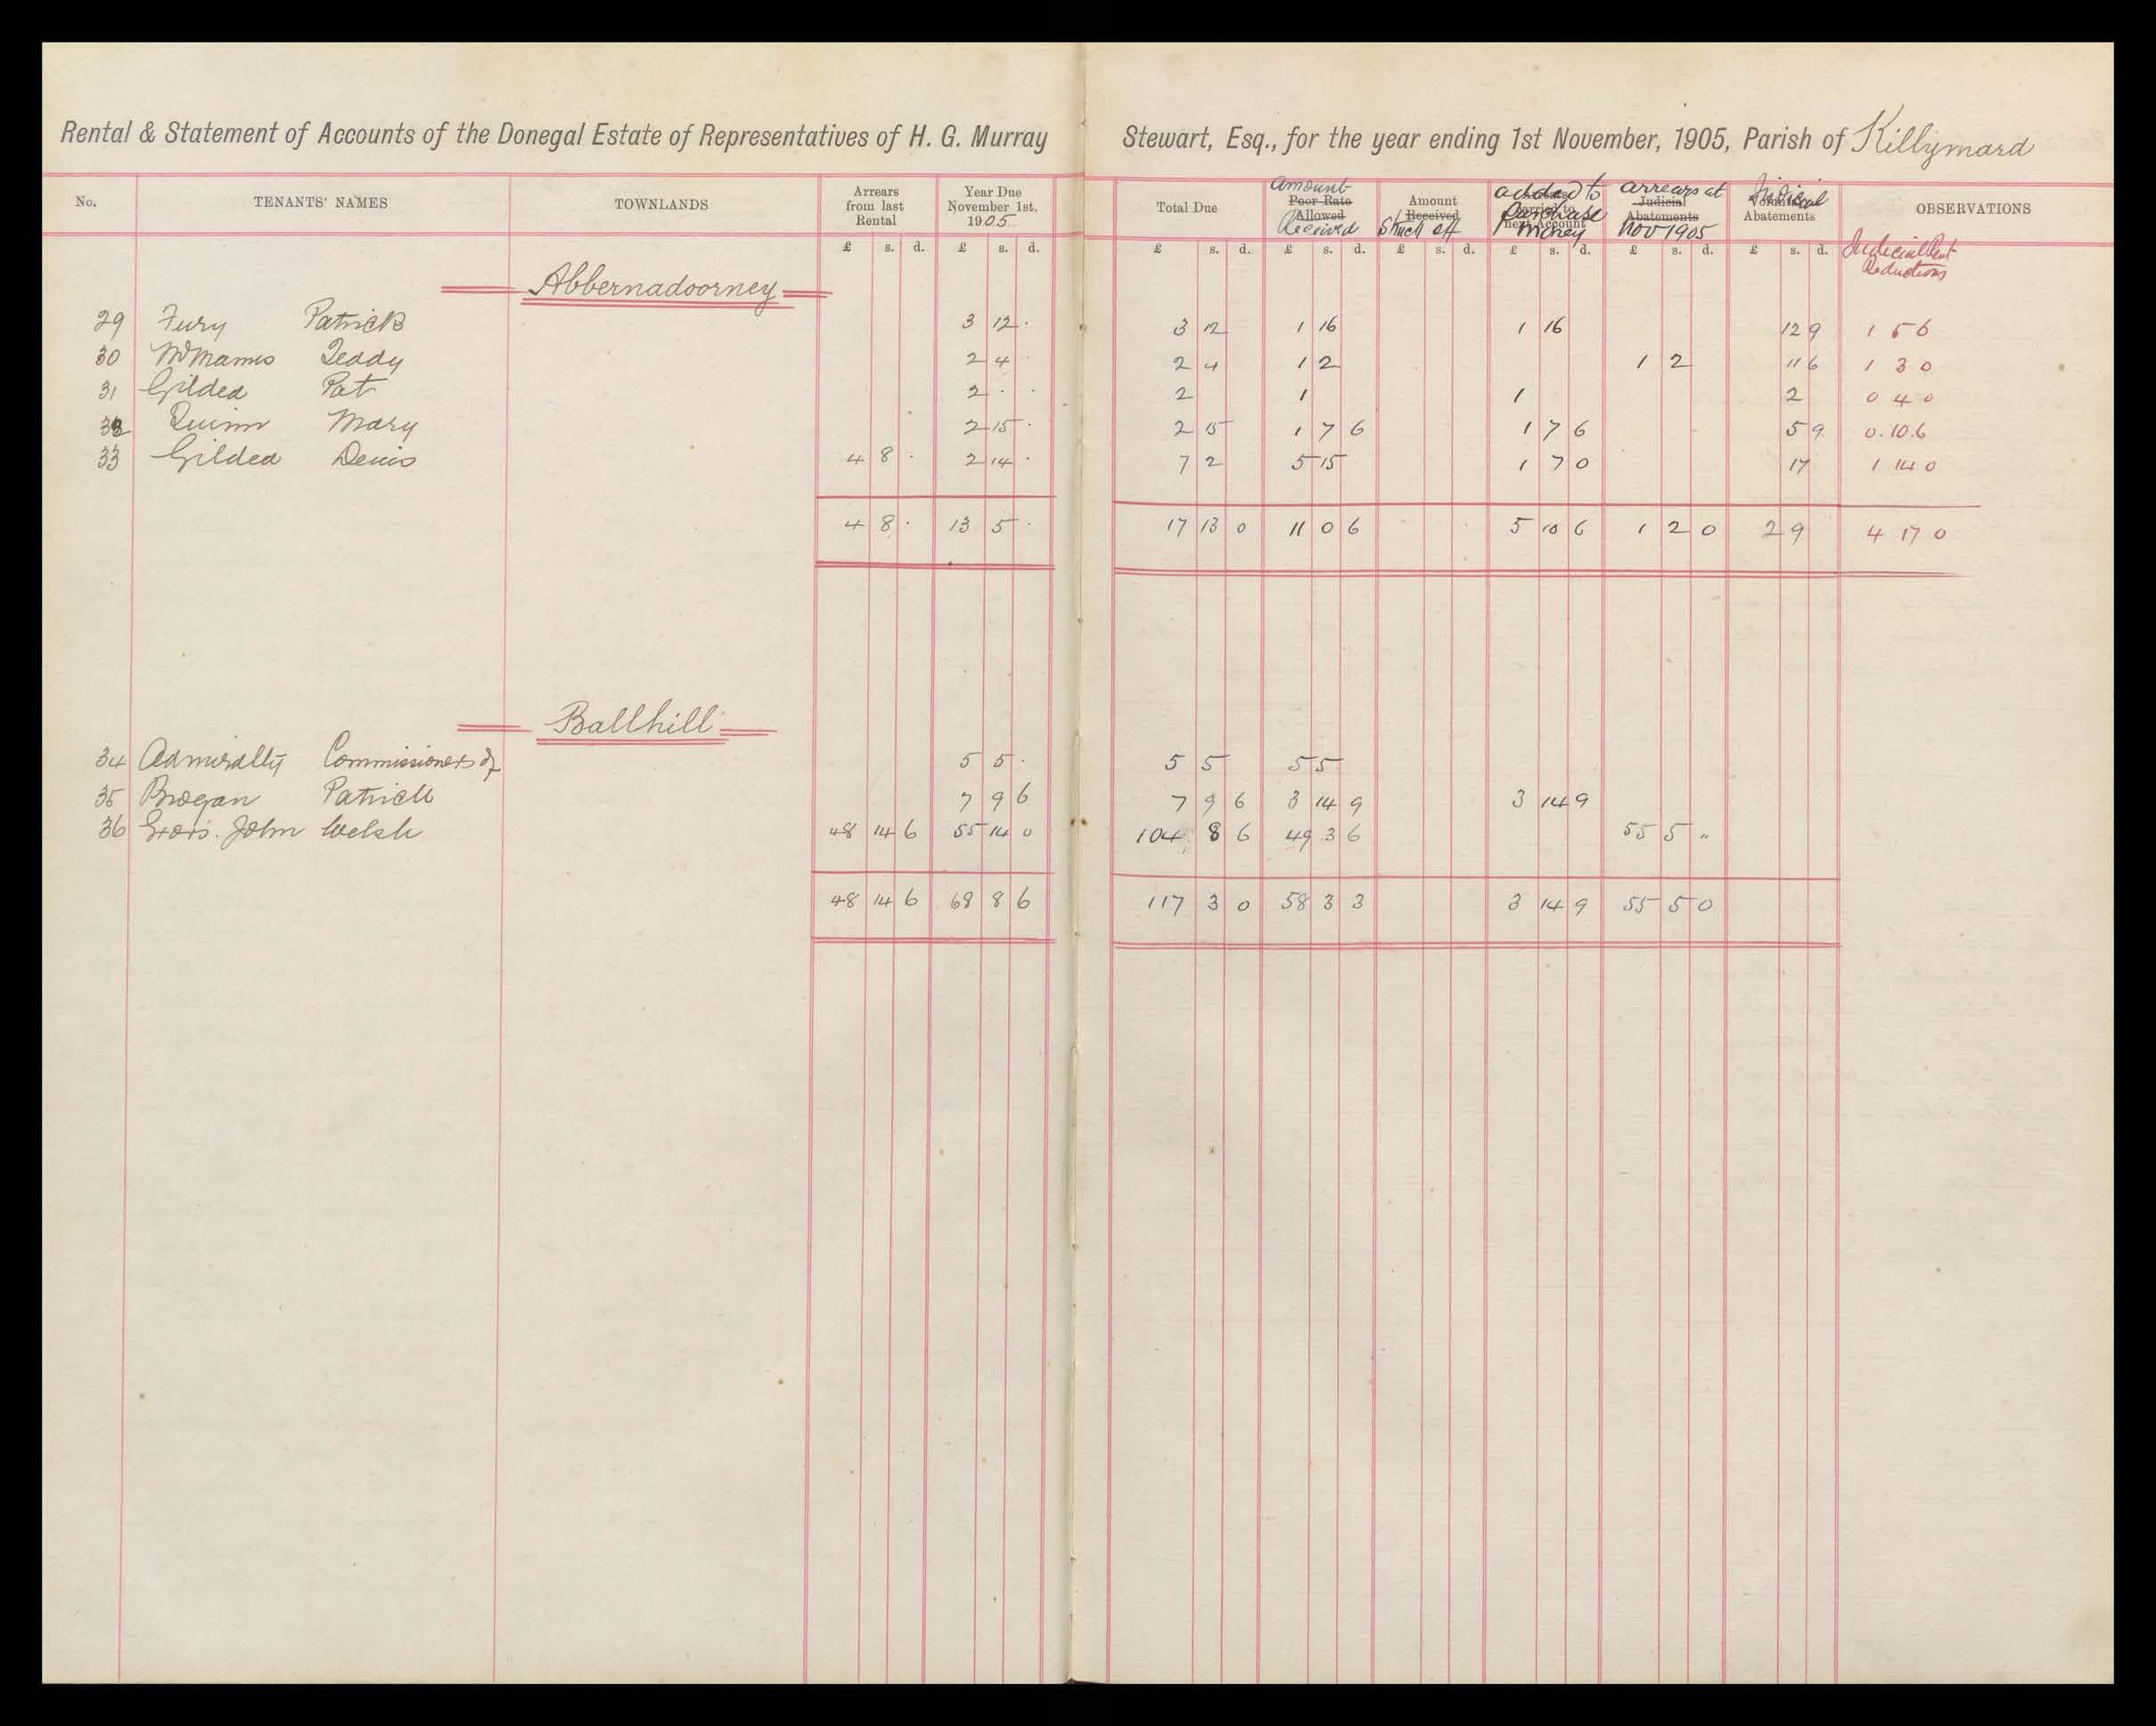 Rental & Statement of Accounts of the Donegal Estate of Representatives of H. G. Murray Stewart, Esq., for the year ending 1st November, 1905, Parish of Killymard
No. TENANTS' NAMES TOWNLANDS Arrears from last Rental Year Due November 1st, 1905 Total Due Amount Poor Rate Allowed Received Amount Received Struck off added to Purchase Money arrears at Judicial Abatements Nov 1905 Judicial Abatements OBSERVATIONS
£ s. d. £ s. d. £ s. d. £ s. d. £ s. d. £ s. d. £ s. d. £ s. d. Judicial Rent Reductions
Abbernadoorney
29 Fury Patrick 3 12 · 3 12 1 16 1 16 12 9 1 5 6
30 McManus Teddy 2 4 · 2 4 1 2 1 2 11 6 1 3 0
31 Gildea Pat 2 · · 2 1 1 2 0 4 0
32 Quinn Mary 2 15 · 2 15 1 7 6 1 7 6 5 9 0.10.6
33 Gildea Denis 4 8 · 2 14 · 7 2 5 15 1 7 0 17 1 14 0
4 8 · 13 5 · 17 13 0 11 0 6 5 10 6 1 2 0 2 9 4 17 0
Ballhill
34 Admiralty Commissioners of 5 5 · 5 5 5 5
35 Brogan Patrick 7 9 6 7 9 6 3 14 9 3 14 9
36 Exors. John Welsh 48 14 6 55 14 0 104 8 6 49 3 6 55 5 "
48 14 6 68 8 6 117 3 0 58 3 3 3 14 9 55 5 0